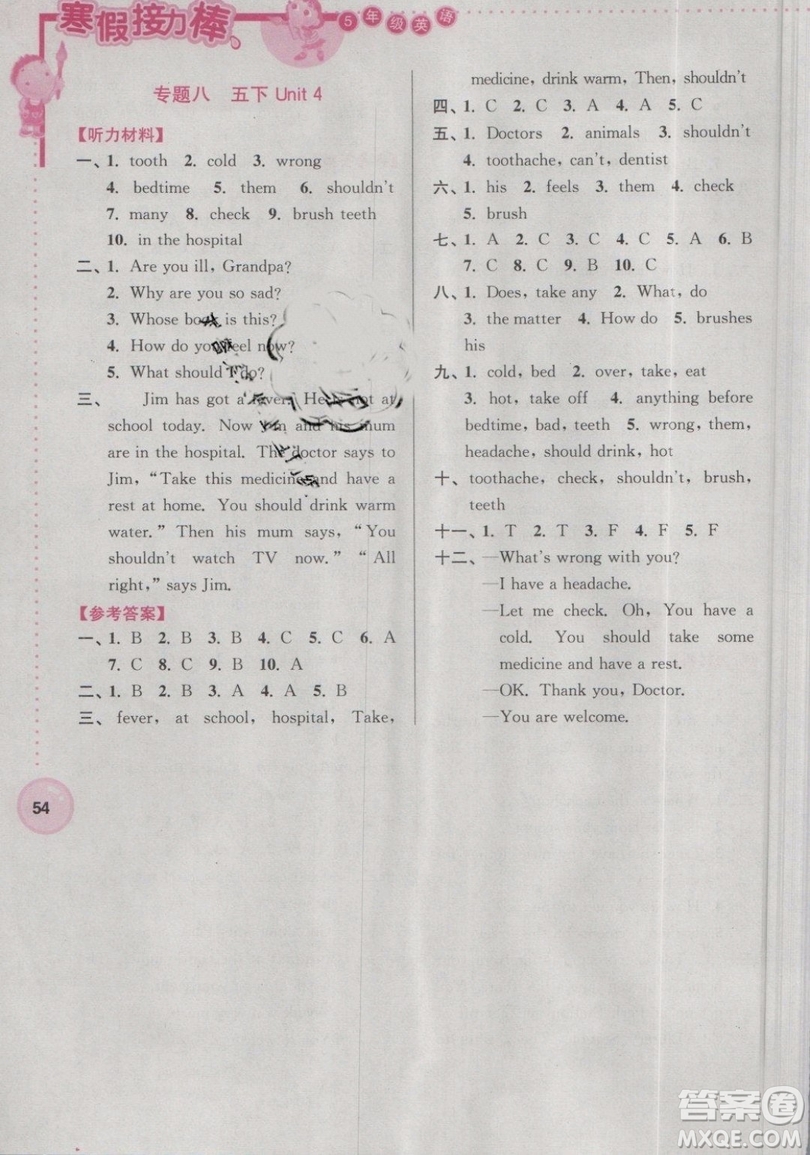 寒假接力棒
5年级英语
专题八 五下 Unit 4
【听力材料】
一、1. tooth 2. cold 3. wrong
4. bedtime 5. them 6. shouldn't
7. many 8. check 9. brush teeth
10. in the hospital
二、1. Are you ill, Grandpa?
2. Why are you so sad?
3. Whose is this?
4. How do you feel now?
5. What should I do?
三、 Jim has got a fever. He is not at
school today. Now Jim and his mum
are in the hospital. The doctor says to
Jim, “Take this medicine and have a
rest at home. You should drink warm
water.” Then his mum says, “You
shouldn't watch TV now.” “All
right,” says Jim.
【参考答案】
一、1. B 2. B 3. B 4. C 5. C 6. A
7. C 8. C 9. B 10. A
二、1. B 2. B 3. A 4. A 5. B
三、fever, at school, hospital, Take,
54
medicine, drink warm, Then, shouldn't
四、1. C 2. C 3. C 4. A 5. C
五、1. Doctors 2. animals 3. shouldn't
4. toothache, can't, dentist
六、1. his 2. feels 3. them 4. check
5. brush
七、1. A 2. C 3. C 4. A 5. A 6. B
7. B 8. C 9. B 10. C
八、1. Does, take any 2. What, do
3. the matter 4. How do 5. brushes
his
九、1. cold, bed 2. over, take, eat
3. hot, take off 4. anything before
bedtime, bad, teeth 5. wrong, them,
headache, should drink, hot
十、toothache, check, shouldn't, brush,
teeth
十一、1. T 2. T 3. F 4. F 5. F
十二、—What's wrong with you?
—I have a headache.
—Let me check. Oh, You have a
cold. You should take some
medicine and have a rest.
—OK. Thank you, Doctor.
—You are welcome.
答案圈
MXQE.COM